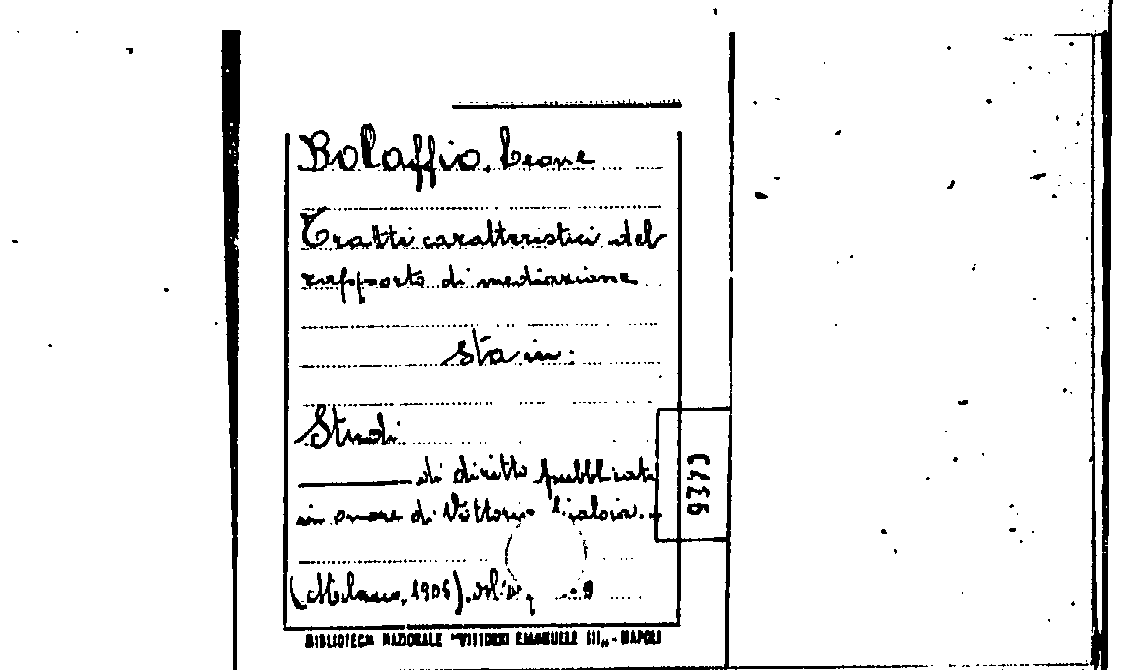 Bolaffio, Leone
Tratti caratteristici del
rapporto di mediazione
sta in:
Studi
di diritto pubblicati
in onore di Vittorio Scialoia.
(Milano, 1905).
9373
BIBLIOTECA NAZIONALE "VITTORIO EMANUELE III„ - NAPOLI